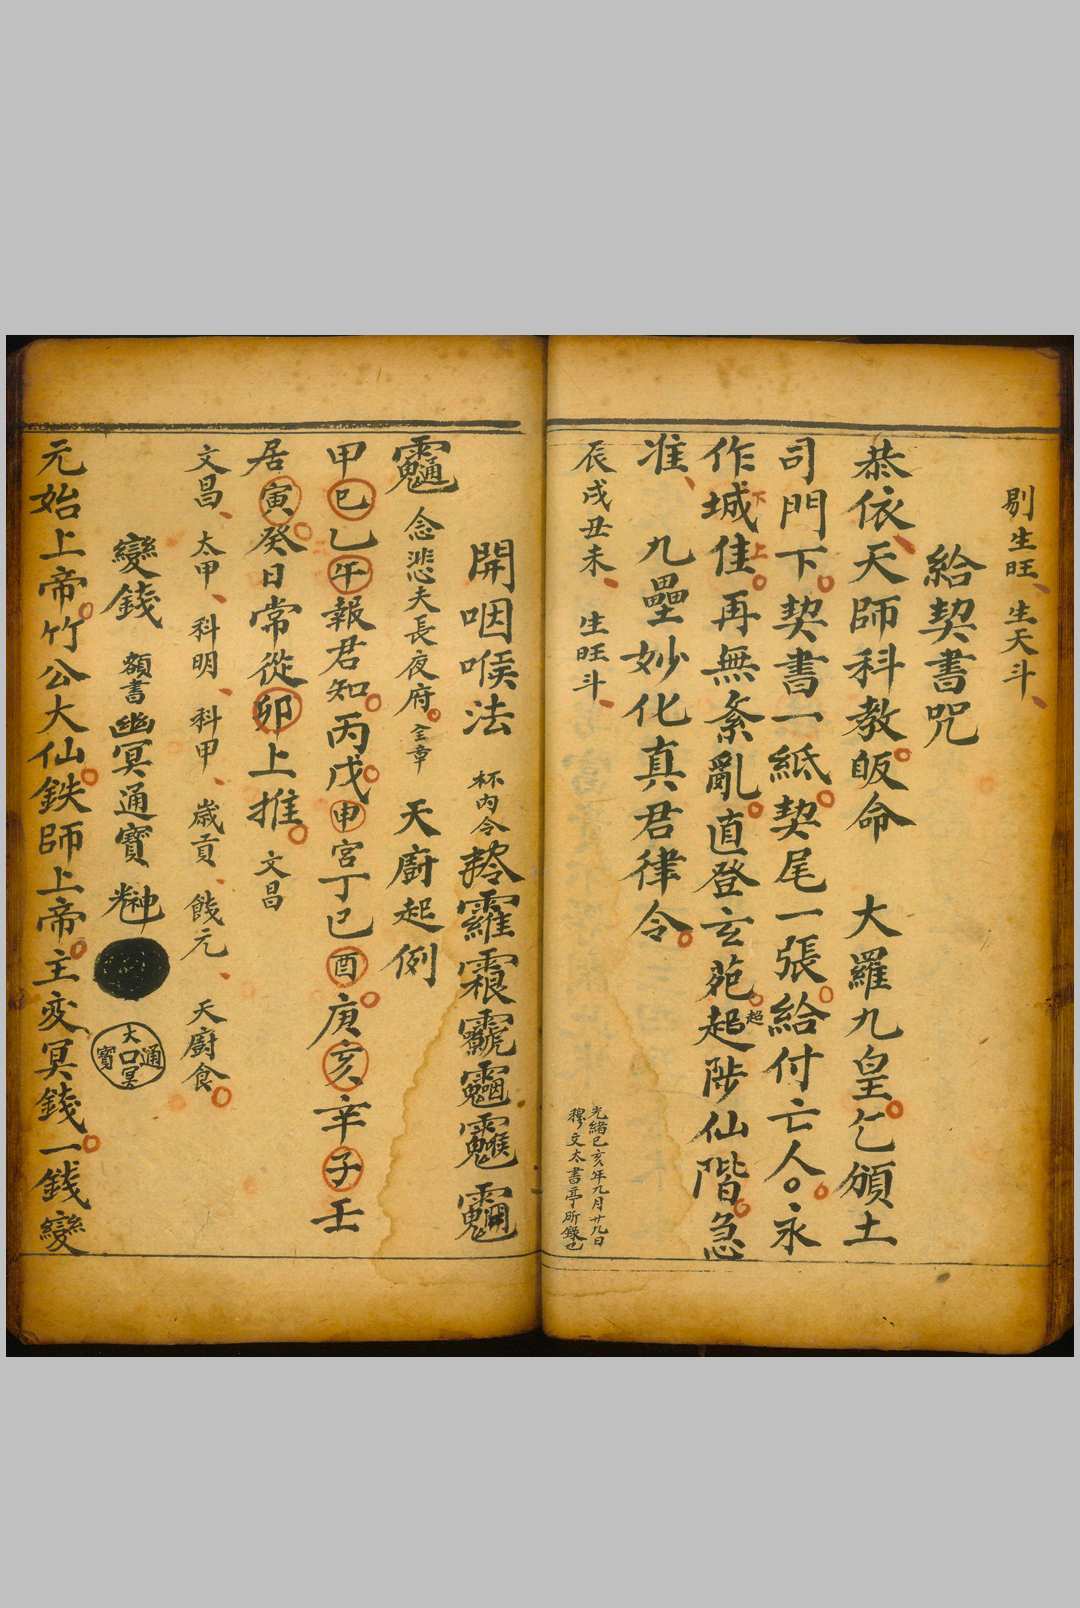 剔生旺、生天斗、
給契書咒
恭依、天師科教。皈命　大羅九皇。乞頒土
司門下。契書一紙。契尾一張。給付亡人。永
作城佳。再無紊亂。直登玄苑。超陟仙階。急
下
上
超
准、九壘妙化真君律令。
辰戌丑未、生旺斗、
光緒己亥年九月廿九日
穆文太書亭所錄也
開咽喉法　杯內令
念悲夫長夜府。全章　天廚起例
甲巳乙午報君知。丙戊。申宮丁己酉。庚亥辛子壬
居寅。癸日常從卯上推。文昌
文昌、太甲、科明、科甲、歲貢、餞元、天廚食。
變錢　額書幽冥通寶
大冥通寶
元始上帝。竹公大仙。鉄師上帝。主变冥錢。一錢變